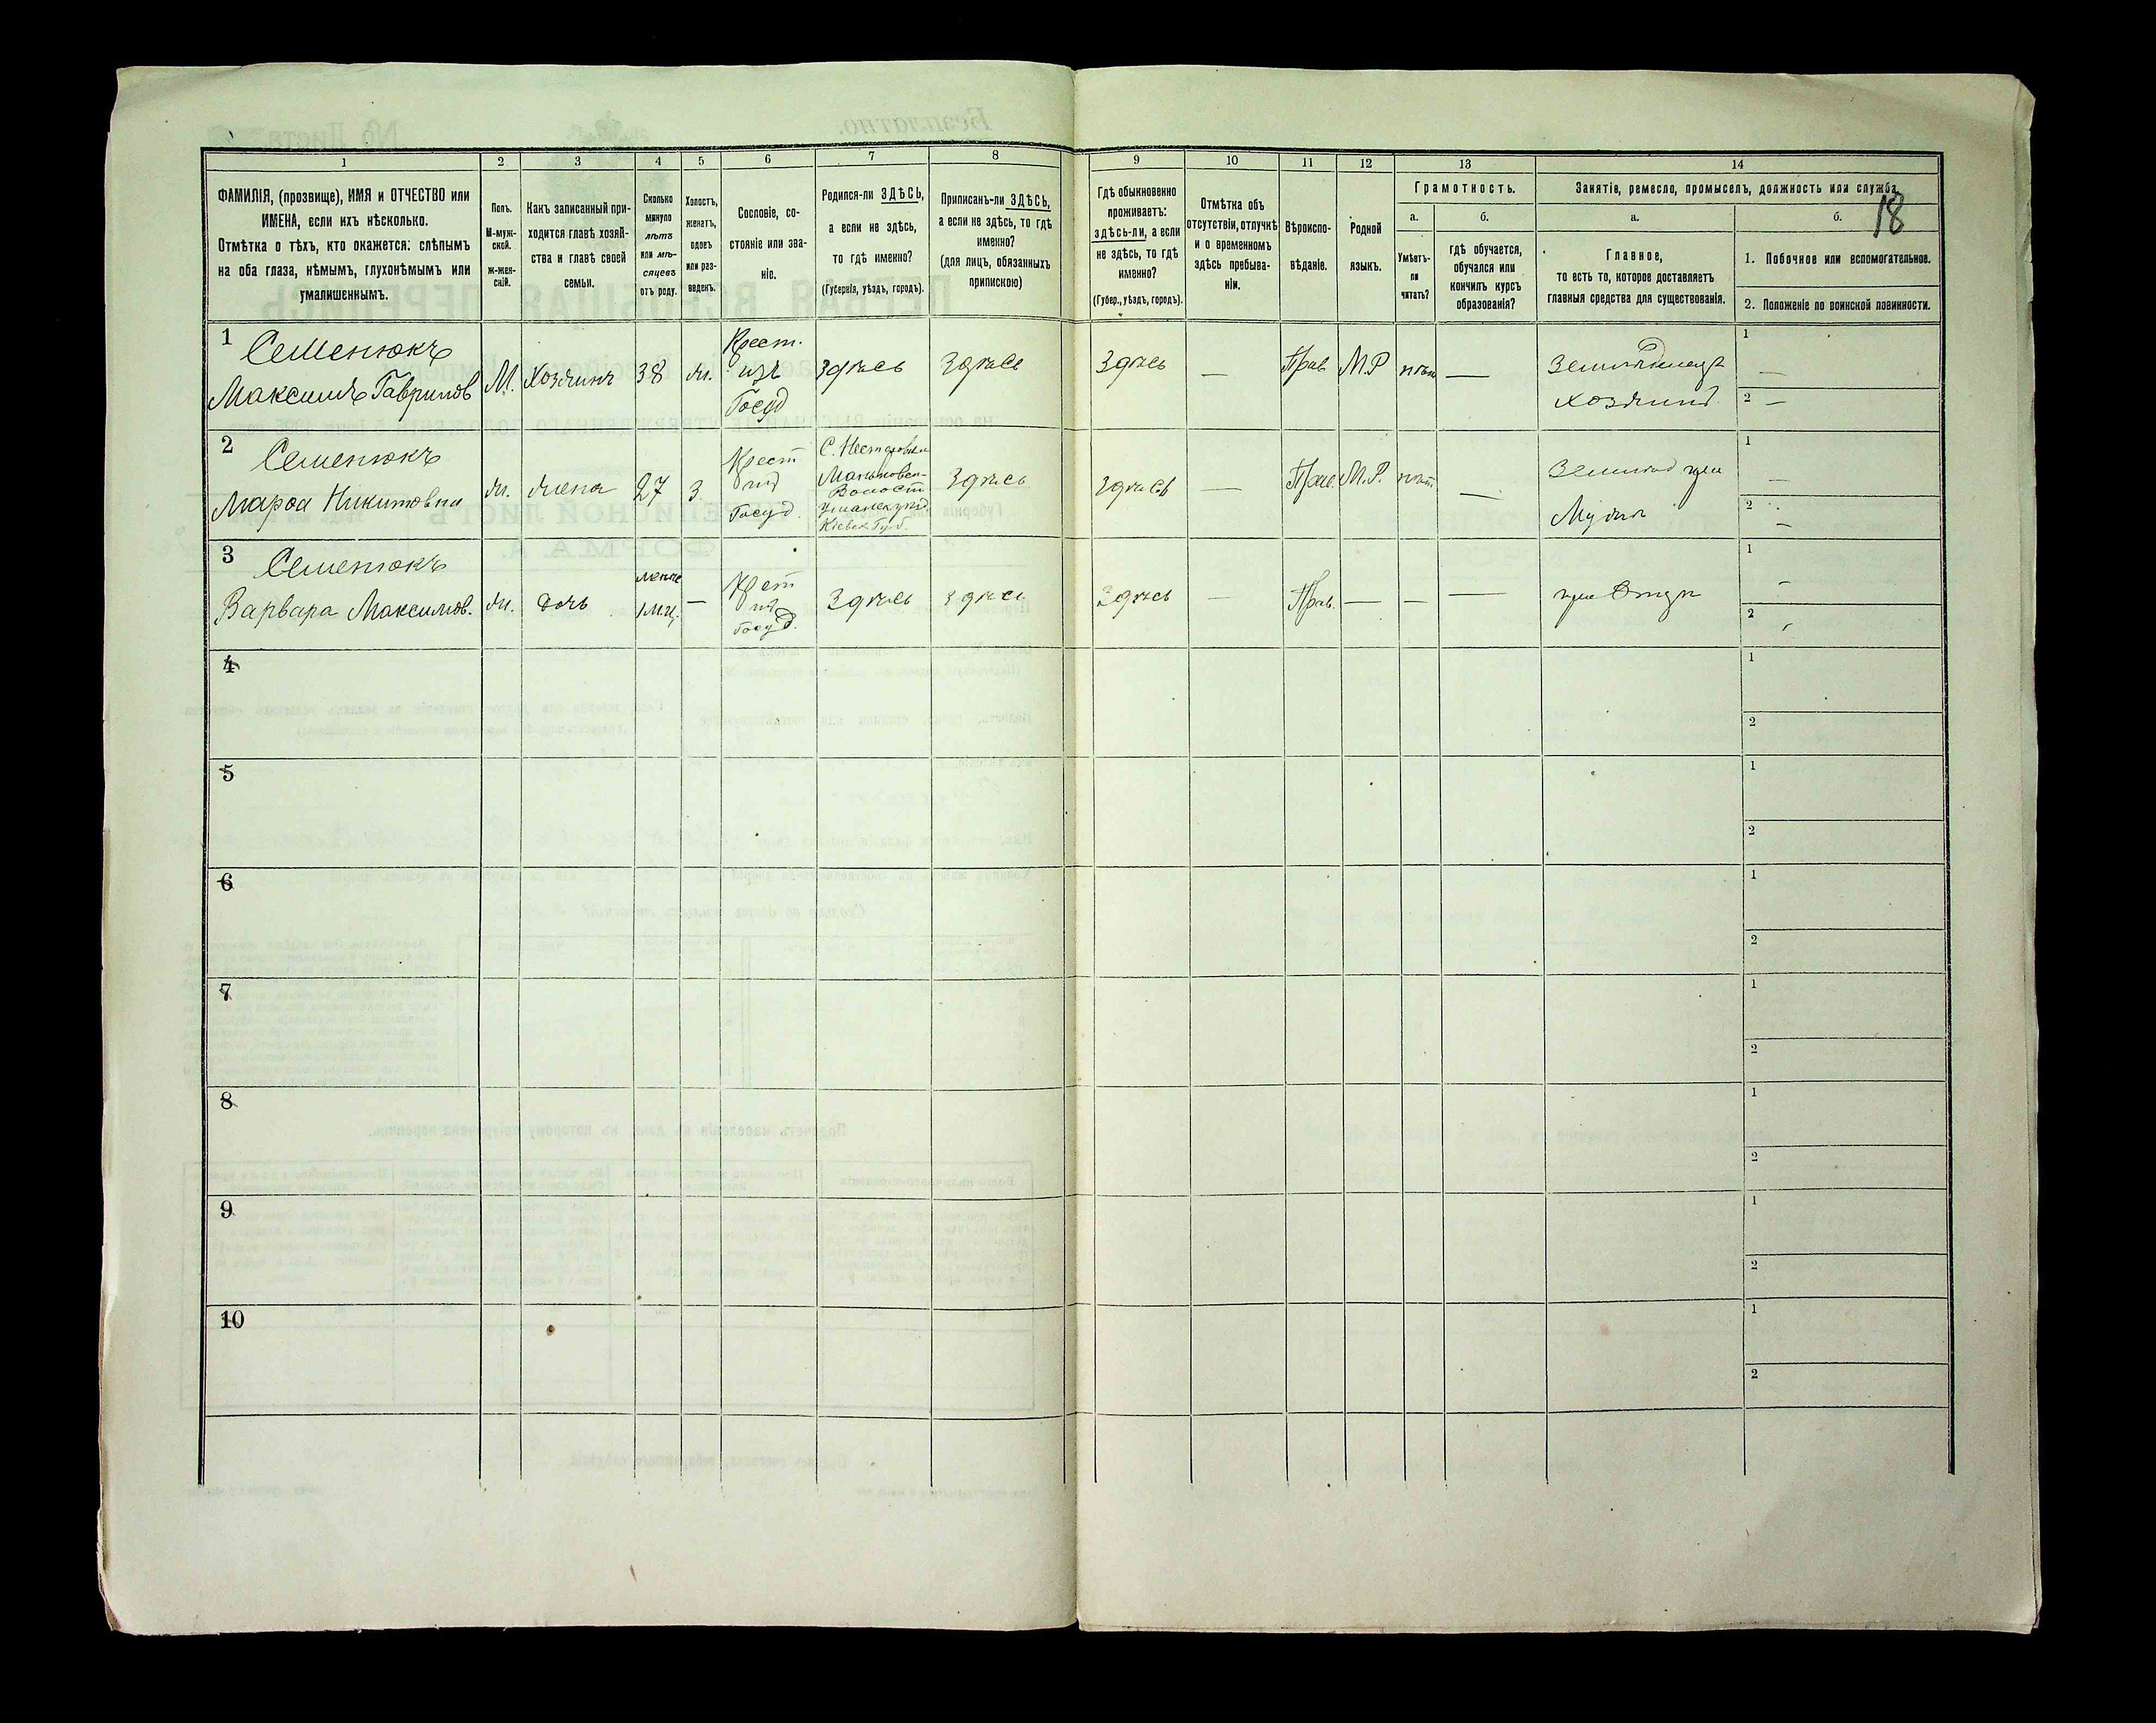 18
1 2 3 4 5 6 7 8 9 10 11 12 13 14
ФАМИЛІЯ, (прозвище), ИМЯ и ОТЧЕСТВО или
ИМЕНА, если ихъ нѣсколько.
Отмѣтка о тѣхъ, кто окажется: слѣпымъ
на оба глаза, нѣмымъ, глухонѣмымъ или
умалишеннымъ.
Полъ.
М-муж-
ской.
ж-жен-
скій.
Какъ записанный при-
ходится главѣ хозяй-
ства и главѣ своей
семьи.
Сколько
минуло
лѣтъ
или мѣ-
сяцевъ
отъ роду.
Холостъ,
женатъ,
вдовъ
или раз-
веденъ.
Сословіе, со-
стояніе или зва-
ніе.
Родился-ли ЗДѢСЬ,
а если не здѣсь,
то гдѣ именно?
(Губернія, уѣздъ, городъ).
Приписанъ-ли ЗДѢСЬ,
а если не здѣсь, то гдѣ
именно?
(для лицъ, обязанныхъ
припискою)
Гдѣ обыкновенно
проживаетъ:
здѣсь-ли, а если
не здѣсь, то гдѣ
именно?
(Губер., уѣздъ, городъ).
Отмѣтка объ
отсутствіи, отлучкѣ
и о временномъ
здѣсь пребыва-
ніи.
Вѣроиспо-
вѣданіе.
Родной
языкъ.
Грамотность.
а.
Умѣетъ-
ли
читать?
б.
гдѣ обучается,
обучался или
кончилъ курсъ
образованія?
Занятіе, ремесло, промыселъ, должность или служба.
а.
Главное,
то есть то, которое доставляетъ
главныя средства для существованія.
б.
1. Побочное или вспомогательное.
2. Положеніе по воинской повинности.
1
Семенюкъ
Максимъ Гаврилов
М.
Хозяинъ
38
ж.
Крест.
изъ
Госуд
Здѣсь
Здѣсь
Здѣсь
—
Прав
М.Р
нѣтъ
—
Хозяинъ
1 —
2 —
2
Семенюкъ
Марѳа Никитовна
ж.
жена
27
З.
Крест
изъ
Госуд.
С. Нестеровки
Маньковск-
Волост.
Уманск. уѣзд.
Кіевск. Губ.
Здѣсь
Здѣсь
—
Прав.
М.Р.
нѣт
—
при
Мужѣ
1 —
2 —
3
Семенюкъ
Варвара Максимов.
ж.
дочь
менѣе
1 м-ц.
—
Крест
изъ
Госуд.
Здѣсь
Здѣсь
Здѣсь
—
Прав.
—
—
—
при Отцѣ
1 —
2
4
1
2
5
1
2
6
1
2
7
1
2
8
1
2
9
1
2
10
1
2